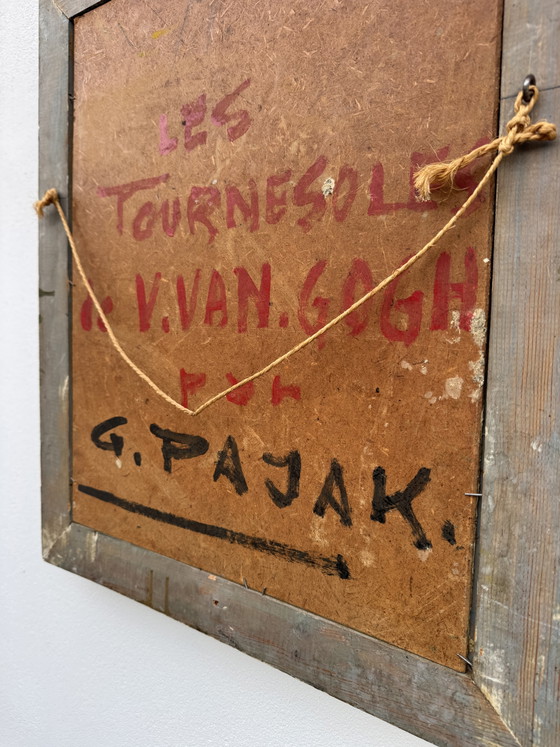 LES
TOURNESOLES
V. VAN. GOGH
G. PAJAK.